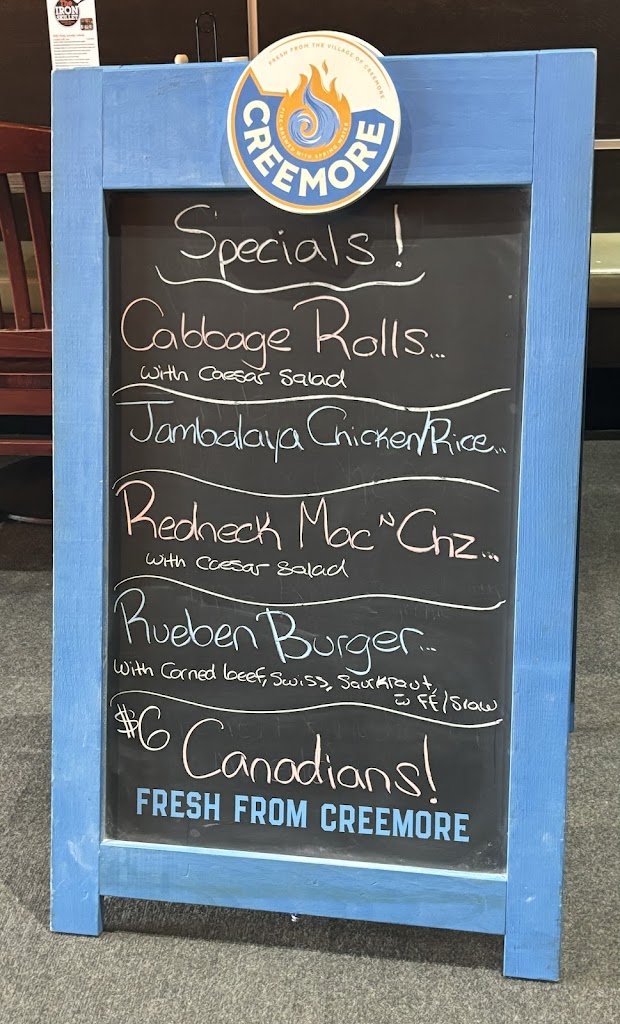 IRON SKILLET
FRESH FROM THE VILLAGE OF CREEMORE
FIRE BREWED WITH SPRING WATER
CREEMORE
Specials!
Cabbage Rolls...
with caesar salad
Jambalaya Chicken/Rice...
Redneck Mac N Chz...
with caesar salad
Rueben Burger...
with Corned beef, Swiss, Saurkraut,
w FF/Slaw
$6 Canadians!
FRESH FROM CREEMORE